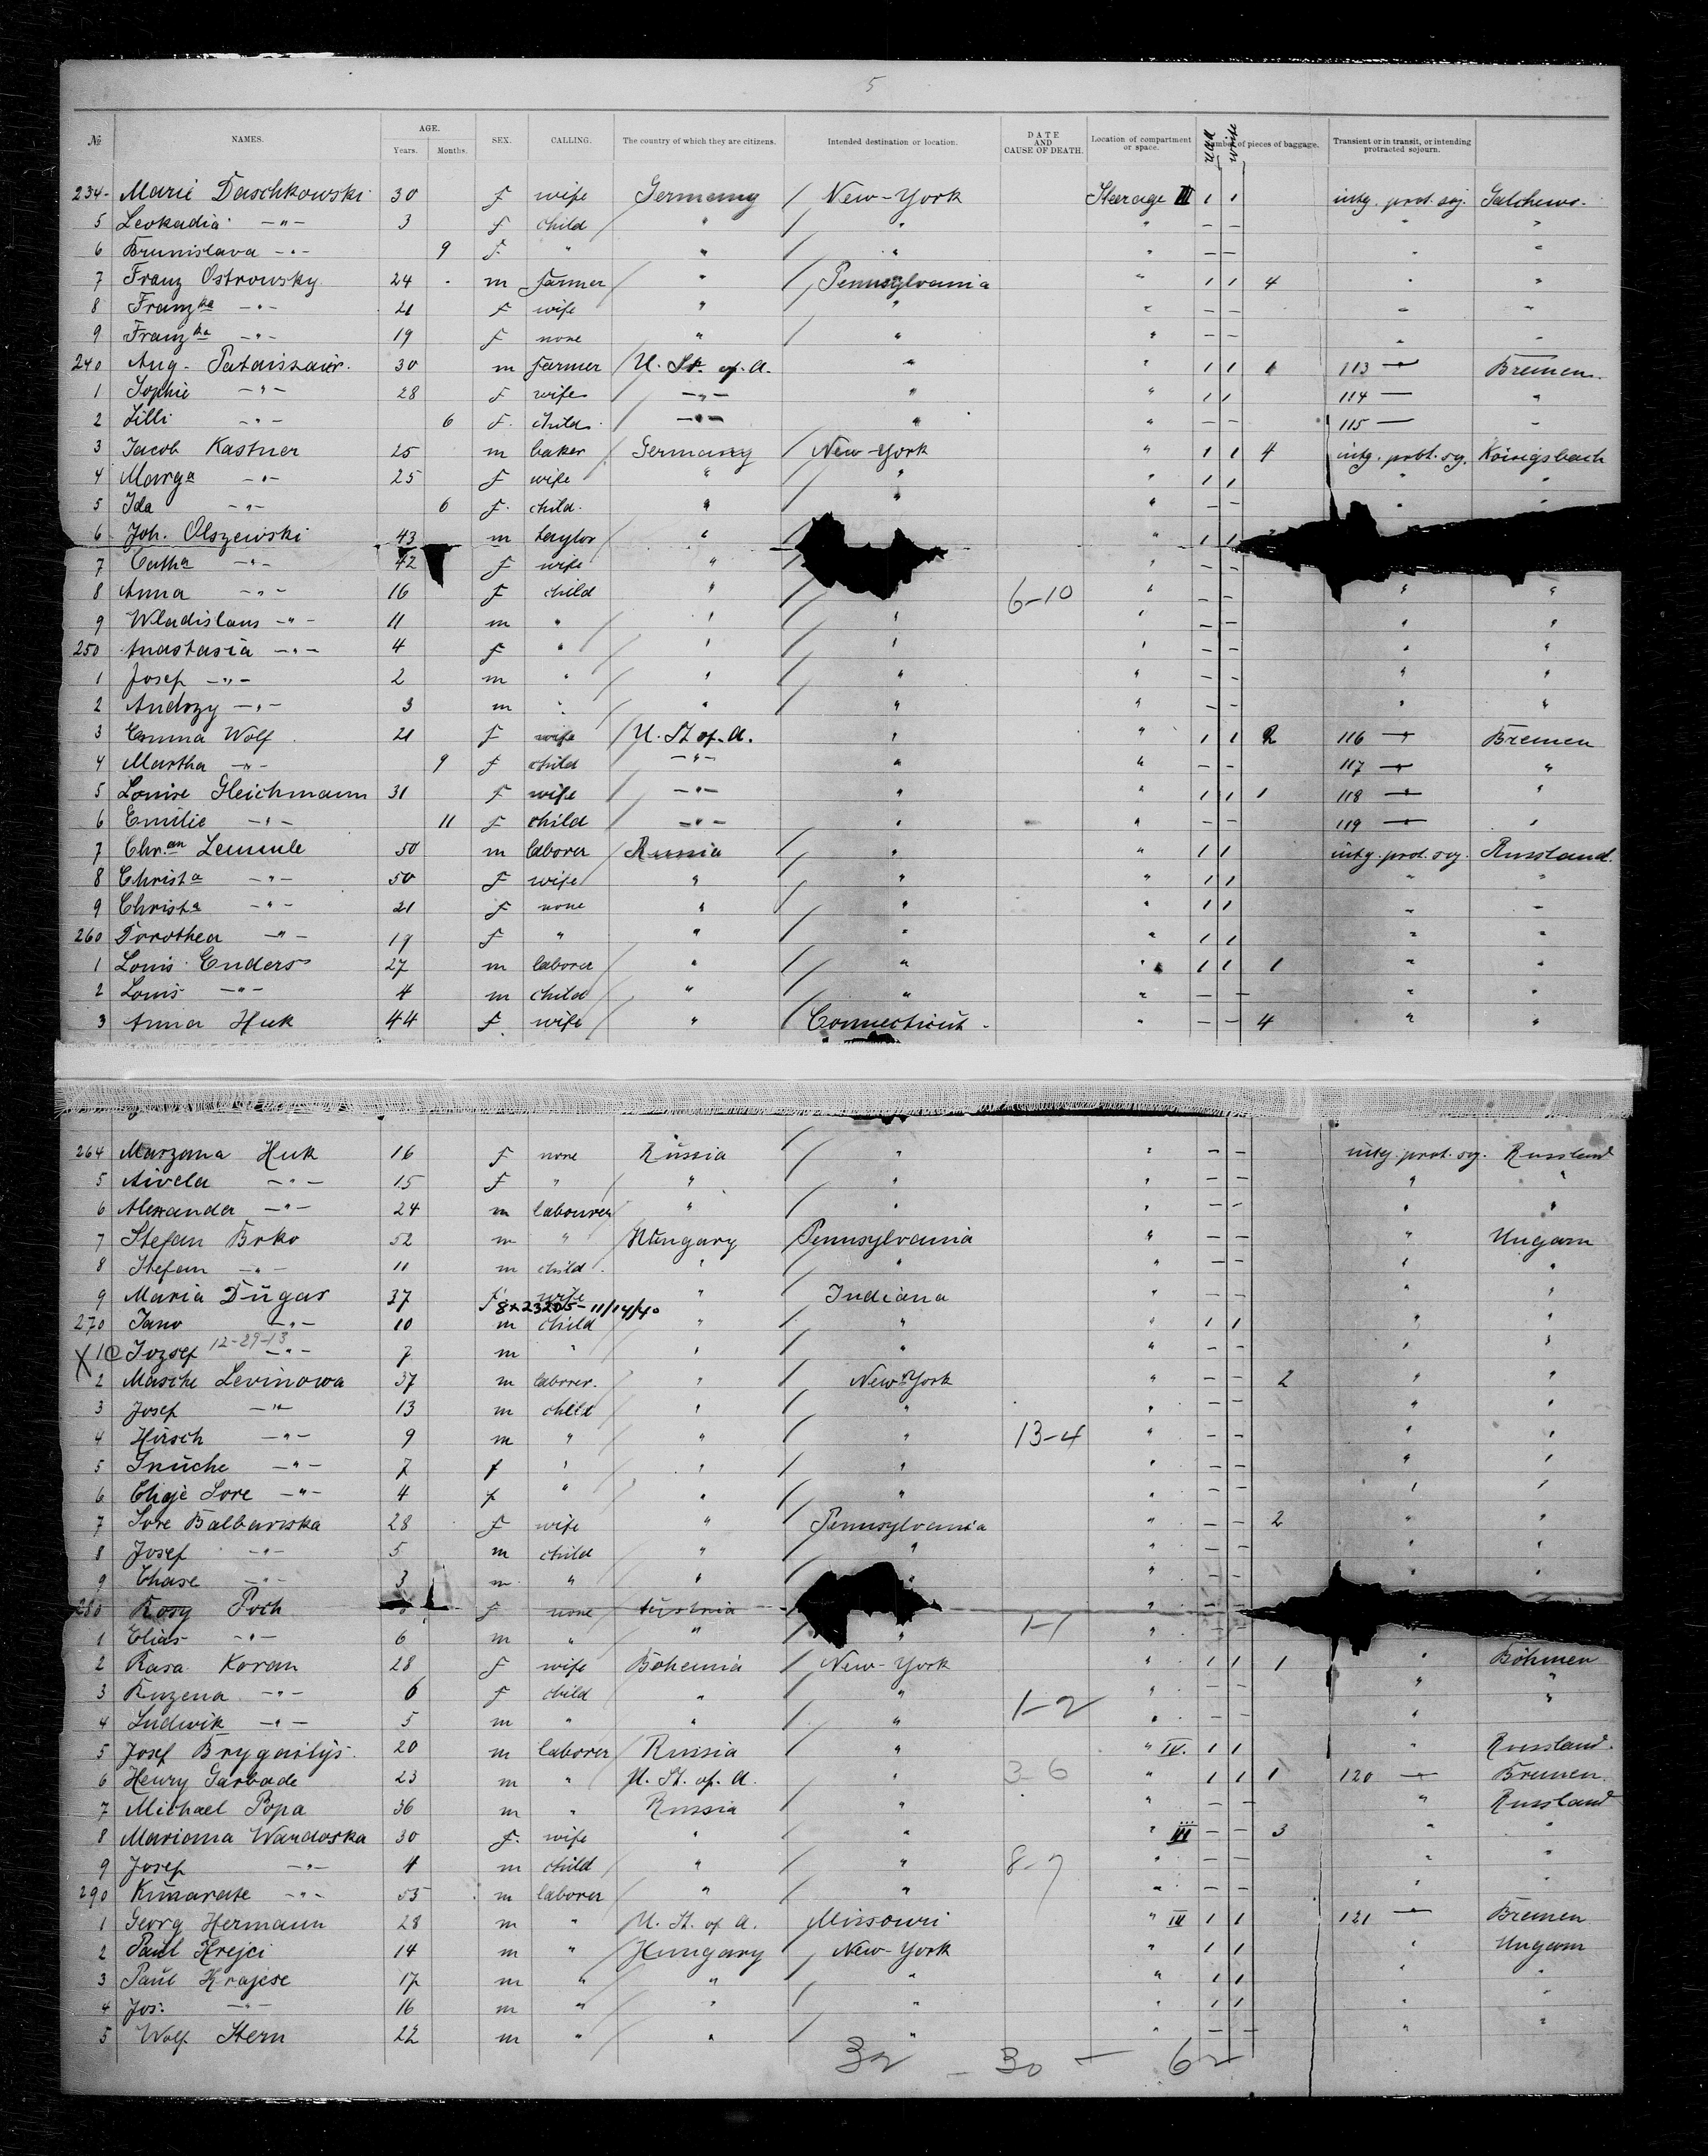 5
№ NAMES. AGE. Years. Months. SEX. CALLING. The country of which they are citizens. Intended destination or location. DATE AND CAUSE OF DEATH. Location of compartment or space. read write Number of pieces of baggage. Transient or in transit, or intending protracted sojourn.
234 Marie Daschkowski 30 f wife Germany / New-York Steerage III 1 1 intg. prot. soj.
5 Leokadia -"- 3 f child / " / " " - - " "
6 Brunislava -"- 9 f " " / " " - - " "
7 Franz Ostrowsky 24 m farmer / " / Pennsylvania " 1 1 4 " "
8 Franzka -"- 21 f wife / " / " " - - " "
9 Franzka -"- 19 f none " / " " - - " "
240 Aug. 30 m farmer / U. St. of. A. " " 1 1 1 113 -"- Bremen
1 Sophie -"- 28 f wife / -"- " " 1 1 114 - "
2 Lilli -"- 6 f. child / -"- " " - - 115 - "
3 Jacob Kastner 25 m baker / Germany / New-York " 1 1 4 intg. prot. soj. Königsbach
4 Marga -"- 25 f wife / " / " " 1 1 " "
5 Ida -"- 6 f. child. / " / " " - - " "
6 Joh. Olszewski 43 m taylor / " / " 1 1
7 Catha -"- 42 f wife " / " - -
8 Anna -"- 16 f child / " / 6-10 " - - " "
9 Wladislaus -"- 11 m " / " / " " - - " "
250 Anastasia -"- 4 f " / " / " " - - " "
1 Josef -"- 2 m " / " / " " - - " "
2 Andrzy -"- 3 m " / " / " " - - " "
3 Emma Wolf 21 f wife / U. St. of. A. " " 1 1 2 116 -"- Bremen
4 Martha -"- 9 f child / -"- " " - - 117 -"- "
5 Louise Gleichmann 31 f wife / -"- " " 1 1 1 118 -"- "
6 Emilie -"- 11 f child / -"- " " - - 119 -"- "
7 Chr.an 50 m laborer / Russia / " " 1 1 intg. prot. soj. Russland.
8 Christa -"- 50 f wife / " / " " 1 1 " "
9 Christa -"- 21 f none " / " " 1 1 " "
260 Dorothea -"- 19 f " " / " " 1 1 " "
1 Louis Enders 27 m laborer " / " " 1 1 1 " "
2 Louis -"- 4 m child / " / " " - - " "
3 Anna Huk 44 f. wife / " / Connecticut. " - - 4 " "
264 Marzana Huk 16 f none Russia / " " - - intg. prot. soj. Russland
5 -"- 15 f " / " / " " - - " "
6 Alexander -"- 24 m labourer " / " " - - " "
7 Stefan Brko 52 m " / Hungary / Pennsylvania " - - " Ungarn
8 Stefan -"- 11 m child " / " " - - " "
9 Maria Dugas 37 f wife " / Indiana " - - " "
8x23205-11/14/40
270 Jano -"- 10 m child / " / " " 1 1 " "
X 1@ Jozsef 12-29-13 -"- 7 m " / " / " " - - " "
2 Masche Levinowa 37 m laborer. / " / New-York " - - 2 " "
3 Josef -"- 13 m child / " / " " - - " "
4 Hirsch -"- 9 m " / " / " 13-4 " - - " "
5 -"- 7 f " / " / " " - - " "
6 Sore -"- 4 f " / " / " " - - " "
7 Sore 28 f wife / " / Pennsylvania " - - 2 " "
8 Josef -"- 5 m child / " / " " - - " "
9 Chase -"- 3 m " / " / " " - - " "
280 Rosy Poch f none Austria " - -
1 Elias -"- 6 m " / " / " 1-1 " - -
2 Rasa Koran 28 f wife / Bohemia / New-York " 1 1 1 " Böhmen
3 Ruzena -"- 6 f child / " / " 1-2 " - - " "
4 Ludwik -"- 5 m " / " / " " - - "
5 Josef 20 m laborer / Russia / " " IV. 1 1 " Russland.
6 Henry Garbade 23 m " / U. St. of. A. " 3-6 " 1 1 1 120 -"- Bremen.
7 Michael Popa 36 m " / Russia / " " - - " Russland
8 Marianna Wardoska 30 f. wife / " / " " III - - 3 " "
9 Josef -"- 4 m child / " / " 8-7 " - - " "
290 -"- 55 m laborer / " / " " - - " "
1 Georg Hermann 28 m " / U. St. of A. / Missouri " IV 1 1 121 -"- Bremen
2 Paul Krejci 14 m " / Hungary / New-York " 1 1 " Ungarn
3 Paul Krajcse 17 m " / " / " " 1 1 " "
4 Jos. -"- 16 m " / " / " " 1 1 " "
5 Wolf Stern 22 m " / " / " " - - " "
32 - 30 - 62